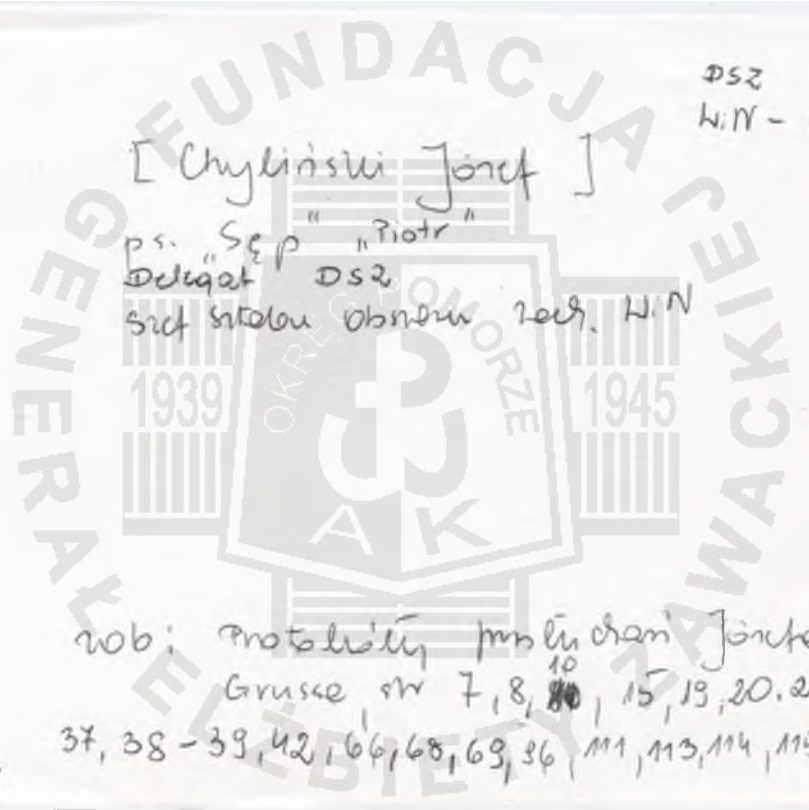 DSZ
WiN -
[ Chyliński Józef ]
ps. "Sęp" "Piotr"
Delegat DSZ
szef sztabu obszaru zach. WiN
zob: Protokóły przesłuchań Józefa
Grussa, str 7, 8, 10, 15, 19, 20.2
37, 38-39, 42, 66, 68, 69, 96, 111, 113, 114, 115
FUNDACJA GENERAŁ ELŻBIETY ZAWACKIEJ
OKRĘG POMORZE
1939
1945
AK